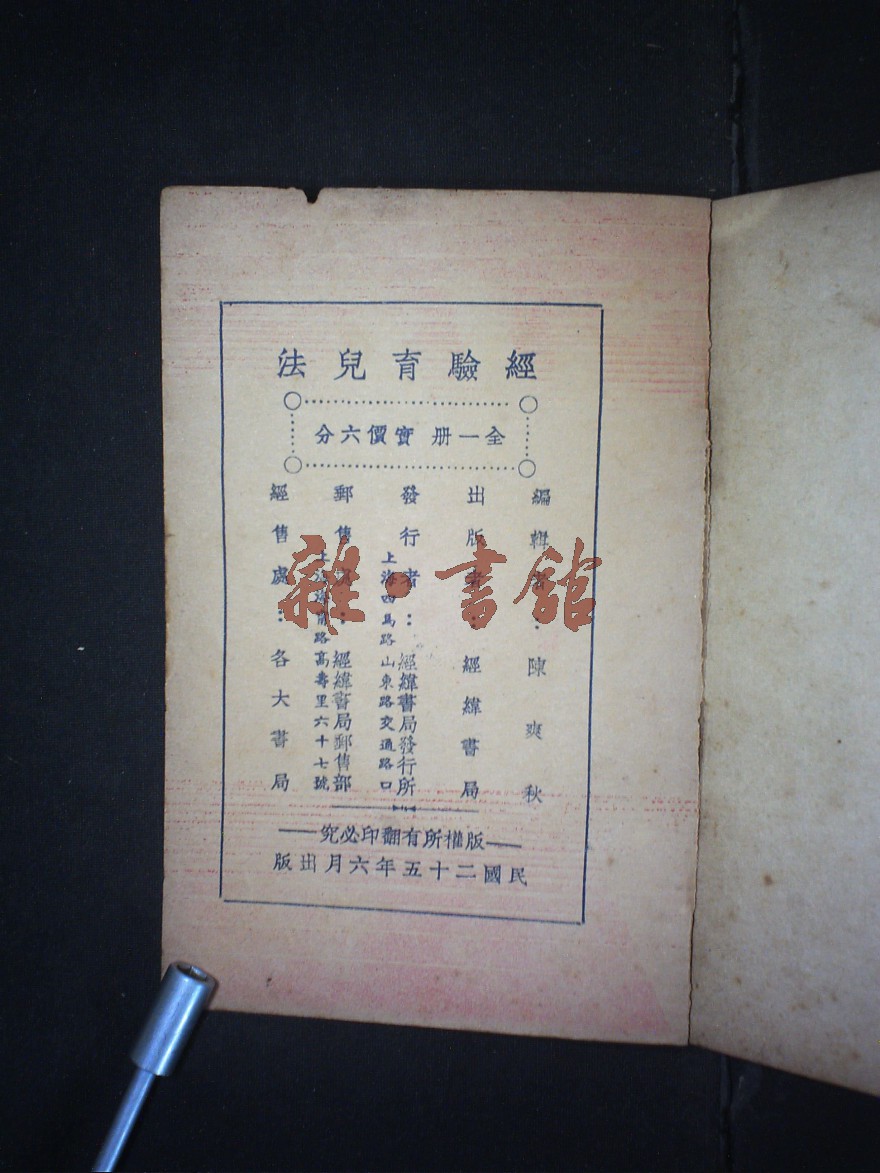 經驗育兒法
全一册 實價六分
編輯者：陳爽秋
出版者：經緯書局
發行者：經緯書局發行所
上海四馬路山東路交通路口
郵售處：經緯書局郵售部
上海海甯路高壽里六十七號
經售處：各大書局
版權所有翻印必究
民國二十五年六月出版
雜·書館